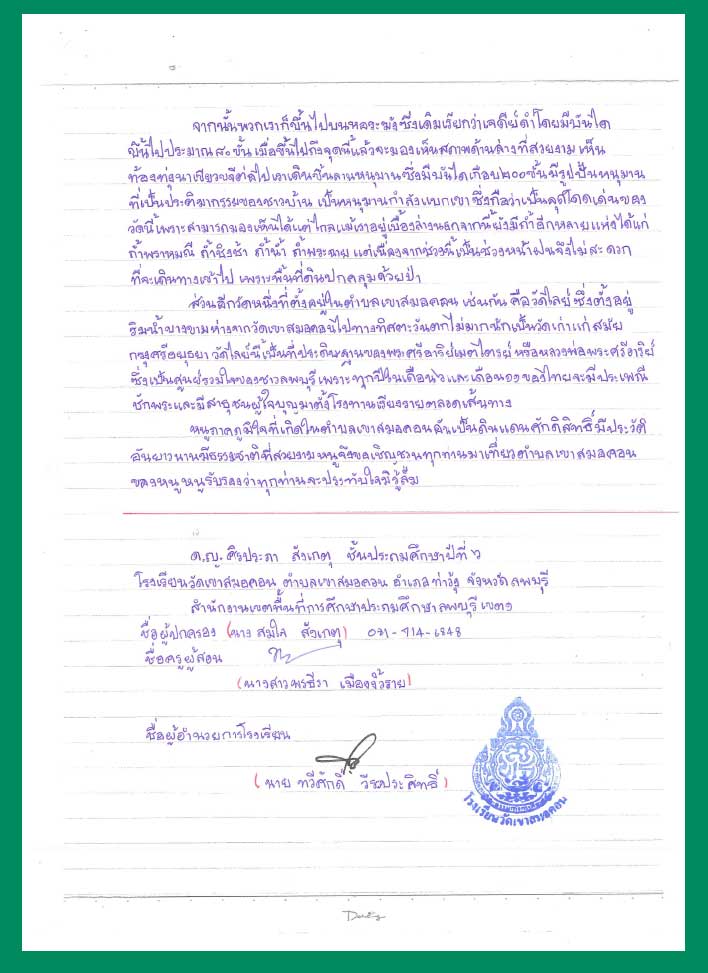 จากนั้นพวกเราก็ขึ้นไปบนหอระฆังซึ่งเดิมเรียกว่าเจดีย์ดำโดยมีบันได
ขึ้นไปประมาณ ๘๐ ขั้น เมื่อขึ้นไปถึงจุดนี้แล้วจะมองเห็นสภาพด้านล่างที่สวยงาม เห็น
ท้องทุ่งนาเขียวขจีต่อไปเราเดินขึ้นลานหนุมานซึ่งมีบันไดเกือบ ๒๐๐ ขั้น มีรูปปั้นหนุมาน
ที่เป็นประติมากรรมของชาวบ้าน เป็นหนุมานกำลังแบกเขา ซึ่งถือว่าเป็นจุดโดดเด่นของ
วัดนี้เพราะสามารถมองเห็นได้แต่ไกลแม้เราอยู่เบื้องล่างนอกจากนี้ยังมีถ้ำอีกหลายแห่งได้แก่
ถ้ำพราหมณี ถ้ำชิงช้า ถ้ำน้ำ ถ้ำพระฉาย แต่เนื่องจากช่วงนี้เป็นช่วงหน้าฝนจึงไม่สะดวก
ที่จะเดินทางเข้าไป เพราะพื้นที่ดินปกคลุมด้วยป่า
ส่วนอีกวัดหนึ่งที่ตั้งอยู่ในตำบลเขาสมอคอน เช่นกัน คือวัดไลย์ ซึ่งตั้งอยู่
ริมน้ำบางขามห่างจากวัดเขาสมอคอนไปทางทิศตะวันตกไม่มากนักเป็นวัดเก่าแก่ สมัย
กรุงศรีอยุธยา วัดไลย์นี้เป็นที่ประดิษฐานของพระศรีอาริย์เมตไตรย์ หรือหลวงพ่อพระศรีอาริย์
ซึ่งเป็นศูนย์รวมใจของชาวลพบุรี เพราะทุกปีในเดือน ๖ และเดือน ๑๑ ของไทยจะมีประเพณี
ชักพระและมีสาธุชนผู้ใจบุญมาตั้งโรงทานเรียงรายตลอดเส้นทาง
หนูภาคภูมิใจที่เกิดในตำบลเขาสมอคอนอันเป็นดินแดนศักดิ์สิทธิ์ มีประวัติ
อันยาวนานมีธรรมชาติที่สวยงามหนูจึงขอเชิญชวนทุกท่านมาเที่ยวตำบลเขาสมอคอน
ของหนู หนูรับรองว่าทุกท่านจะประทับใจมิรู้ลืม
ด.ญ. ศิรประภา สังเกตุ ชั้นประถมศึกษาปีที่ ๖
โรงเรียนวัดเขาสมอคอน ตำบลเขาสมอคอน อำเภอท่าวุ้ง จังหวัดลพบุรี
สำนักงานเขตพื้นที่การศึกษาประถมศึกษาลพบุรี เขต ๑
ชื่อผู้ปกครอง (นาง สมใจ สังเกตุ)
ชื่อครูผู้สอน
ชื่อผู้อำนวยการโรงเรียน
(นาย ทวีศักดิ์ วีระประสิทธิ์)
โรงเรียนวัดเขาสมอคอน